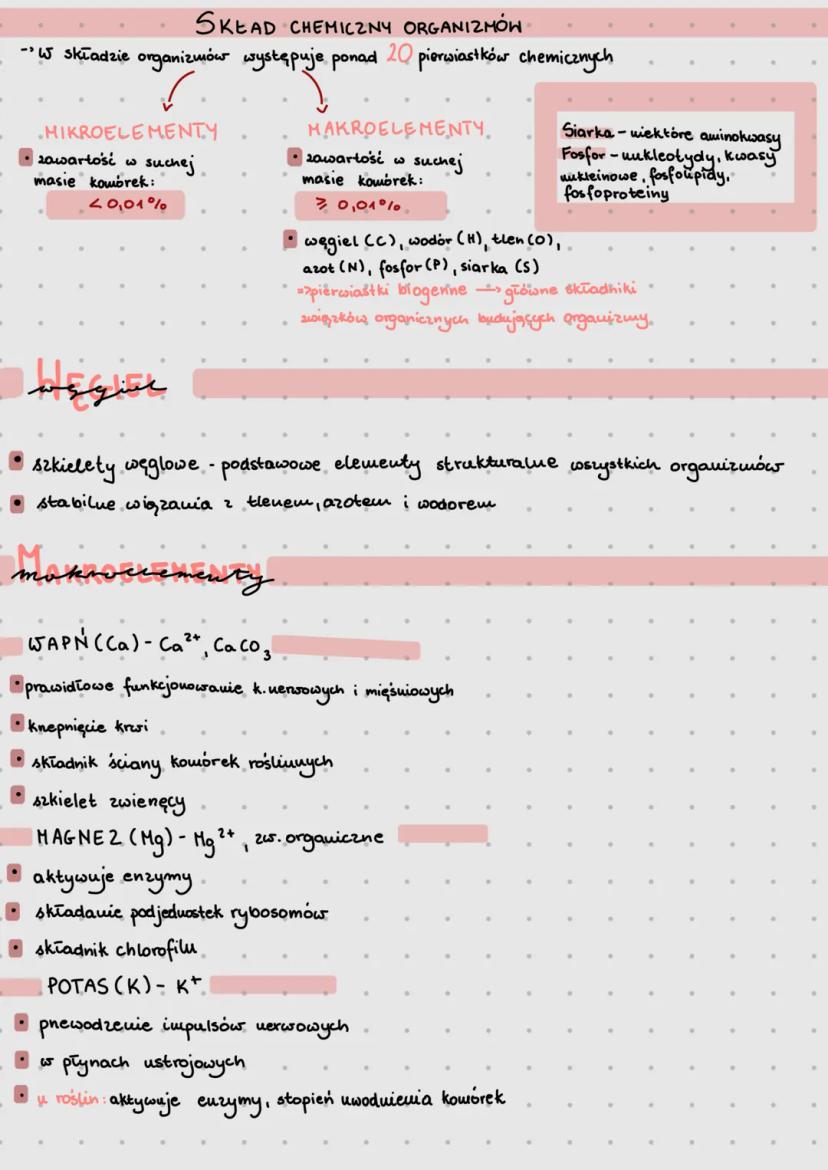 SKŁAD CHEMICZNY ORGANIZMÓW
→ W składzie organizmów występuje ponad 20 pierwiastków chemicznych
MIKROELEMENTY
• zawartość w suchej
masie komórek:
< 0,01%
MAKROELEMENTY
• zawartość w suchej
masie komórek:
≥ 0,01%
• węgiel (C), wodór (H), tlen (O),
azot (N), fosfor (P), siarka (S)
=> pierwiastki biogenne → główne składniki
związków organicznych budujących organizmy.
Siarka - niektóre aminokwasy
Fosfor - nukleotydy, kwasy
nukleinowe, fosfolipidy,
fosfoproteiny
WĘGIEL
węgiel
• szkielety węglowe - podstawowe elementy strukturalne wszystkich organizmów
• stabilne wiązania z tlenem, azotem i wodorem
MAKROELEMENTY
makroelementy
WAPŃ (Ca) - Ca²⁺, CaCO₃
• prawidłowe funkcjonowanie k. nerwowych i mięśniowych
• krzepnięcie krwi
• składnik ściany komórek roślinnych
• szkielet zwierzęcy
MAGNEZ (Mg) - Mg²⁺, zw. organiczne
• aktywuje enzymy
• składanie podjednostek rybosomów
• składnik chlorofilu
POTAS (K) - K⁺
• przewodzenie impulsów nerwowych
• w płynach ustrojowych
• u roślin: aktywuje enzymy, stopień uwodnienia komórek